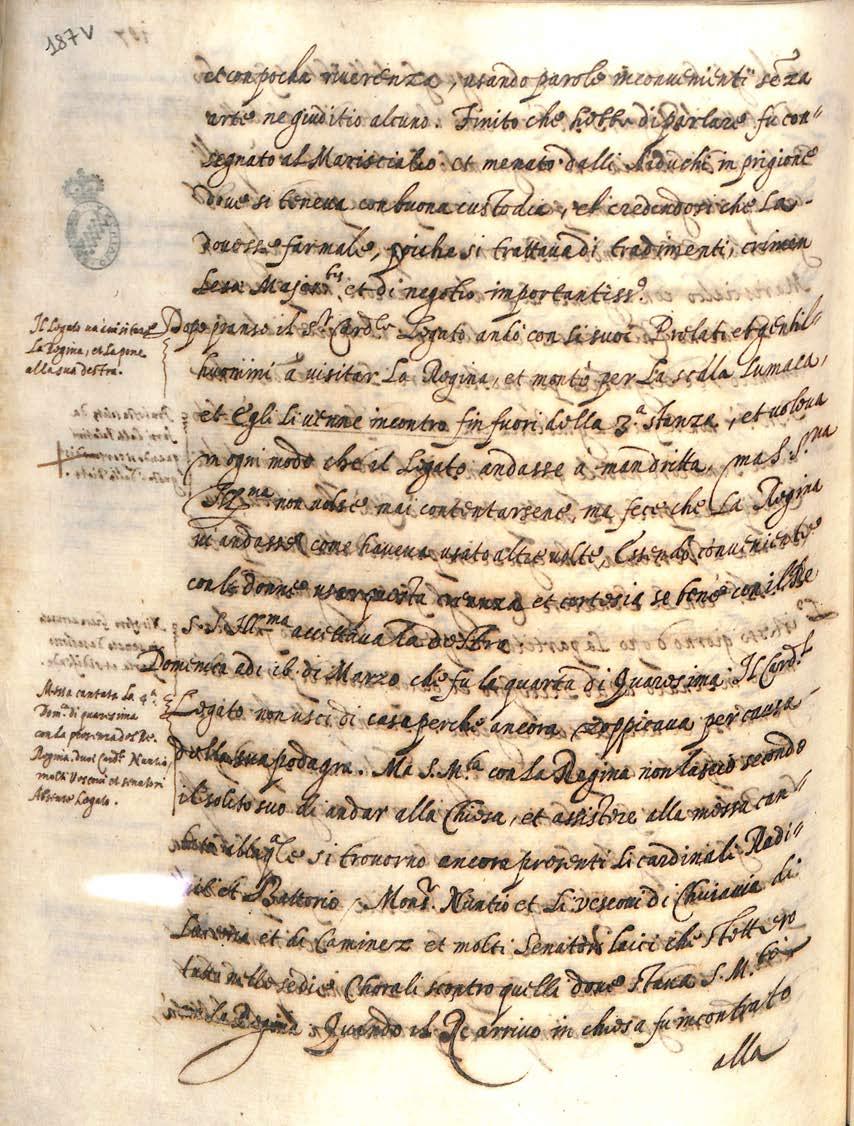 187 v
et con pocha riverenza, usando parole inconvenienti sēza
arte ne giuditio alcuno. Finito che hebbe di parlare fu con"
segnato al Marisciallo et menato dalli Aiduchi in prigione
dove si teneva con buona custodia, et credendosi che La
dovesse far male, poiche si trattava di tradimenti, crimen
Lesæ Majestatis, et di negotio importantiss.º
Il Legato va à visitare
La Regina, et la pone
alla sua destra.
Dopo pranso il S.r Card.le Legato andò con li suoi Prelati et gentil"
huomini à visitar La Regina, et montò per La scala Lumaca,
et Egli li venne incontro fin fuori della 3.a stanza, et voleva
in ogni modo che il Legato andasse a mandritta, ma S. S.ria
Ill.ma non volse mai contentarsene, ma fece che La Regina
vi andasse come haveva usato altre volte, Essendo conveniente
con le donne usar questa creanza et cortesia se bene con il Re
S. S. Ill.ma accettava La destra
Domenica adi 16. di Marzo che fu la quarta di Quaresima. Il Card.le
Messa cantata La 4.a
Dom.ca di quaresima
con la presenza del Re.
Regina, duoi Card.li Nuntio,
molti Vescovi et senatori
Absente Legato.
Legato non uscì di casa perche ancora zoppicava per causa
della sua podagra. Ma S. M.tà con La Regina non lasciò secondo
il solito suo di andar alla Chiesa, et assistere alla messa can"
tata alla q.le si trovorno ancora presenti li cardinali Radi"
vil et Battorio, Mons.r Nuntio et li vescovi di Chuiavia di
Luceria et di Caminez et molti Senatori laici che stettero
tutti nelle sedie Chorali scontro quelli dove stava S. M.tà
et La Regina. Quando il Re arrivo in chiesa fu incontrato
alla